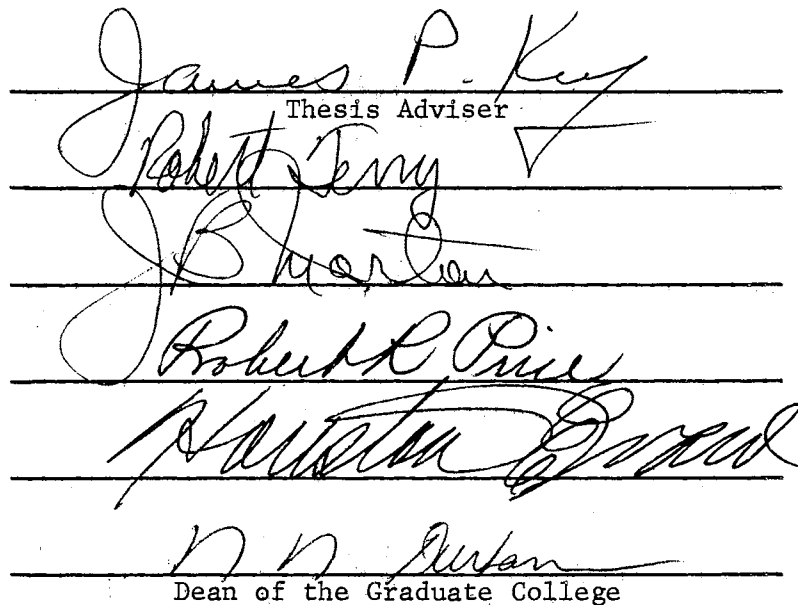 James P. Key
Thesis Adviser
Robert Terry
J B Morton
Robert R Price
Houston E. Ward
N N Durham
Dean of the Graduate College